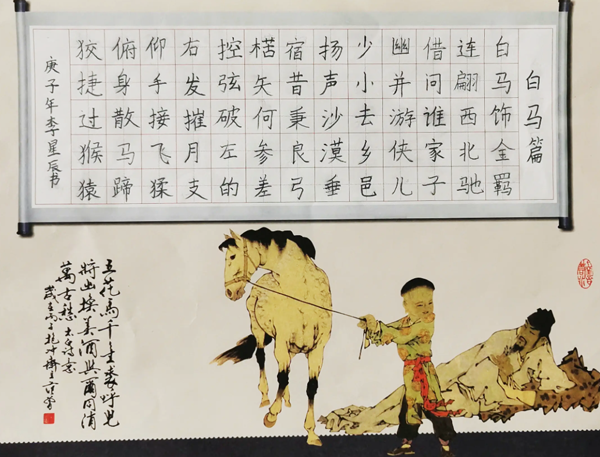 白马篇
白马饰金羁
连翩西北驰
借问谁家子
幽并游侠儿
少小去乡邑
扬声沙漠垂
宿昔秉良弓
楛矢何参差
控弦破左的
右发摧月支
仰手接飞猱
俯身散马蹄
狡捷过猴猿
庚子年李星辰书
五花馬千金裘呼兒
將出换美酒與爾同消
萬古愁太白诗意
歲在丙子抱冲齋主范曾